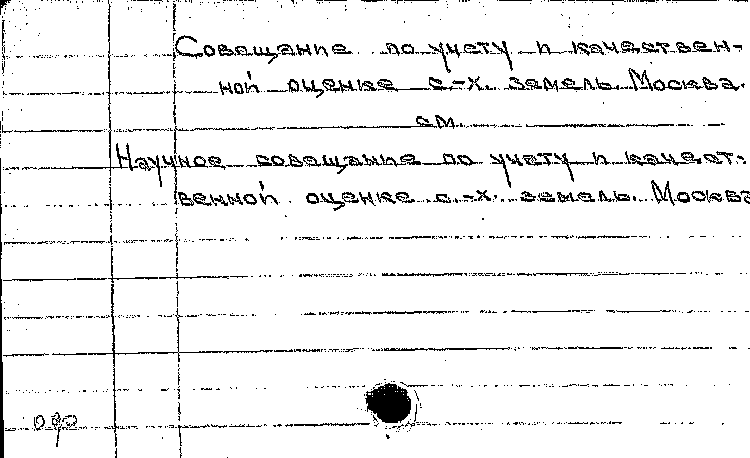 Совещание по учету и качествен-
ной оценке с.-х. земель. Москва.
см.
Научное совещание по учету и качест-
венной оценке с.-х. земель. Москва